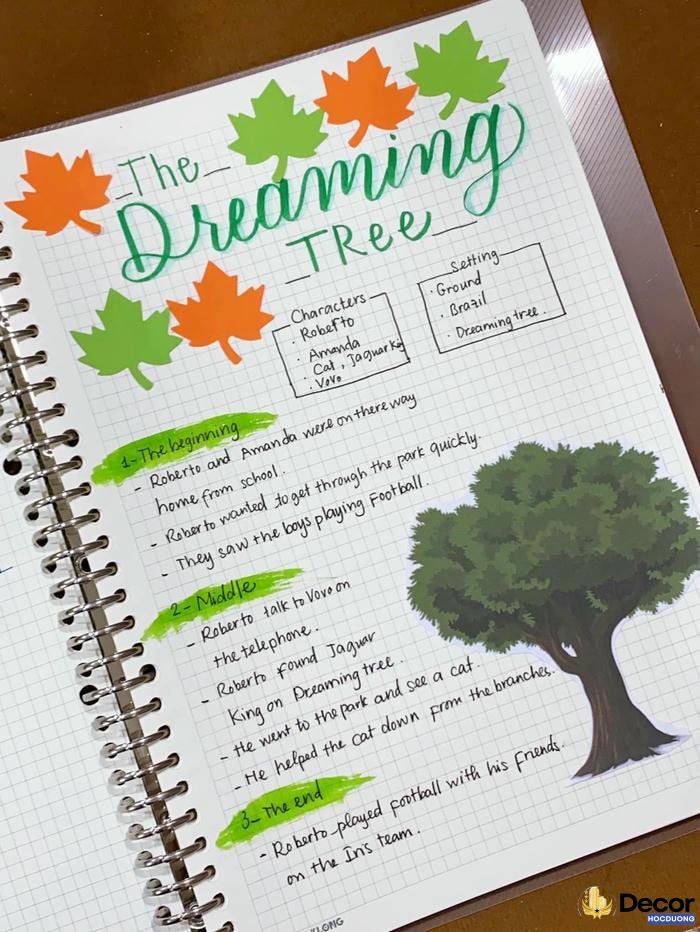 The
Dreaming
TRee
Characters
· Roberto
· Amanda
· Cat, Jaguar King
· Vovo
Setting
· Ground
· Brazil
· Dreaming tree.
1- The beginning
- Roberto and Amanda were on there way
home from school.
- Roberto wanted to get through the park quickly.
- They saw the boys playing Football.
2- Middle
- Roberto talk to Vovo on
the telephone.
- Roberto found Jaguar
King on Dreaming tree.
- He went to the park and see a cat.
- He helped the cat down from the branches.
3- The end
- Roberto played football with his friends.
on the Iris team.
KLONG
Decor
HOCDUONG